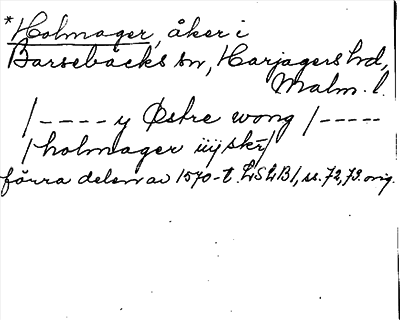 *Holmager, åker i
Barsebäcks sn, Harjagers hd,
Malm. l.
/---- y Østre wong /-----
/holmager iiÿ skr/
förra delen av 1570-t. LSLB1, ss. 72, 73. orig.